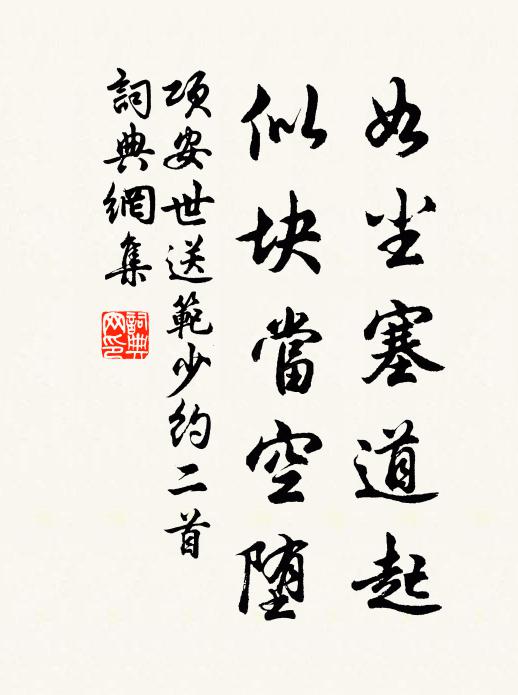 如尘塞道起
似块當空堕
项安世送範少约二首
詞典網集
詞典
网印